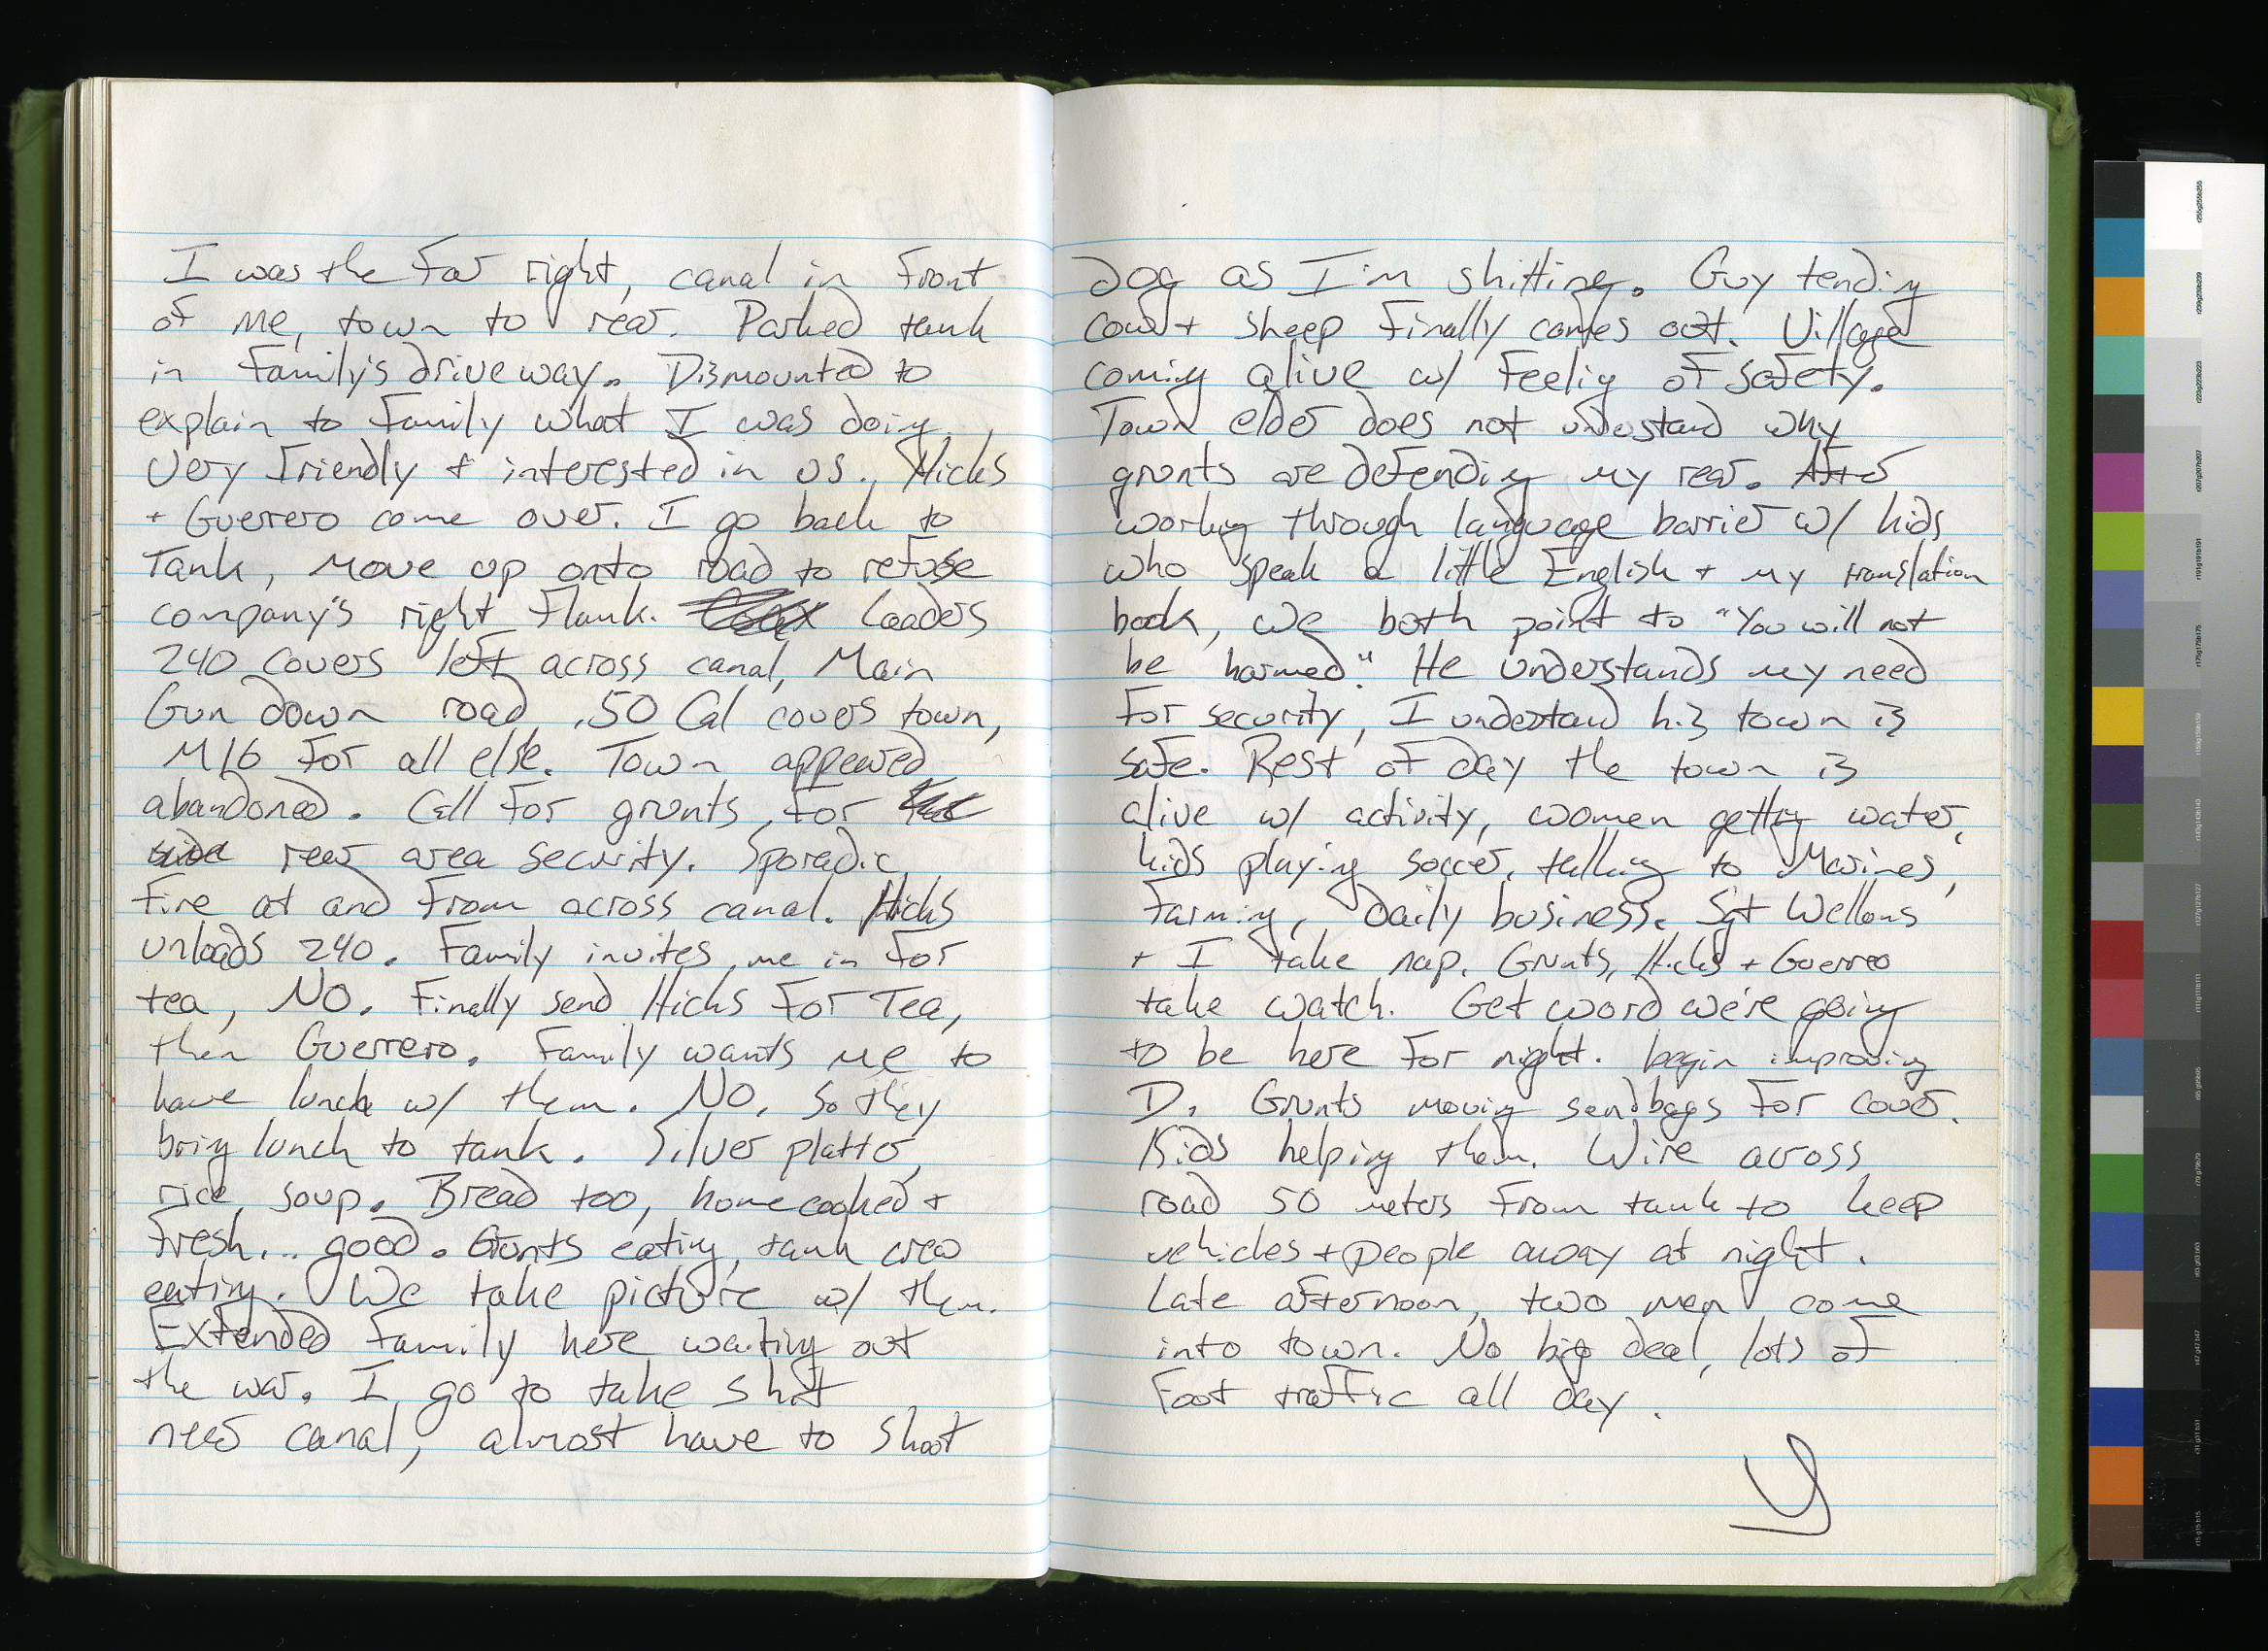 I was the far right, canal in front
of me, town to rear. Parked tank
in family's driveway. Dismounted to
explain to family what I was doing.
Very friendly + interested in us. Hicks
+ Guerrero come over. I go back to
Tank, move up onto road to refuse
company's right flank. Loaders
240 covers left across canal, Main
Gun down road, .50 Cal covers town,
M16 for all else. Town appeared
abandoned. Call for grunts for
rear area security. Sporadic
fire at and from across canal. Hicks
unloads 240. Family invites me in for
tea, NO. Finally send Hicks for Tea,
then Guerrero. Family wants me to
have lunch w/ them. NO. So they
bring lunch to tank. Silver platter,
rice, soup. Bread too, home cooked +
fresh... good. Grunts eating, tank crew
eating. We take picture w/ them.
Extended family here waiting out
the war. I go to take shit
near canal, almost have to shoot
dog as I'm shitting. Guy tending
cow + sheep finally comes out. Village
coming alive w/ feeling of safety.
Town elder does not understand why
grunts are defending my rear. After
working through language barrier w/ kids
who speak a little English + my translation
book, we both point to "You will not
be harmed." He understands my need
for security, I understand his town is
safe. Rest of day the town is
alive w/ activity, women getting water,
kids playing soccer, talking to Marines,
farming, daily business. Sgt Wellons
+ I take nap. Grunts, Hicks + Guerrero
take watch. Get word we're going
to be here for night. begin improving
D. Grunts moving sandbags for cover.
Kids helping them. Wire across
road 50 meters from tank to keep
vehicles + people away at night.
Late afternoon, two men come
into town. No big deal, lots of
foot traffic all day.